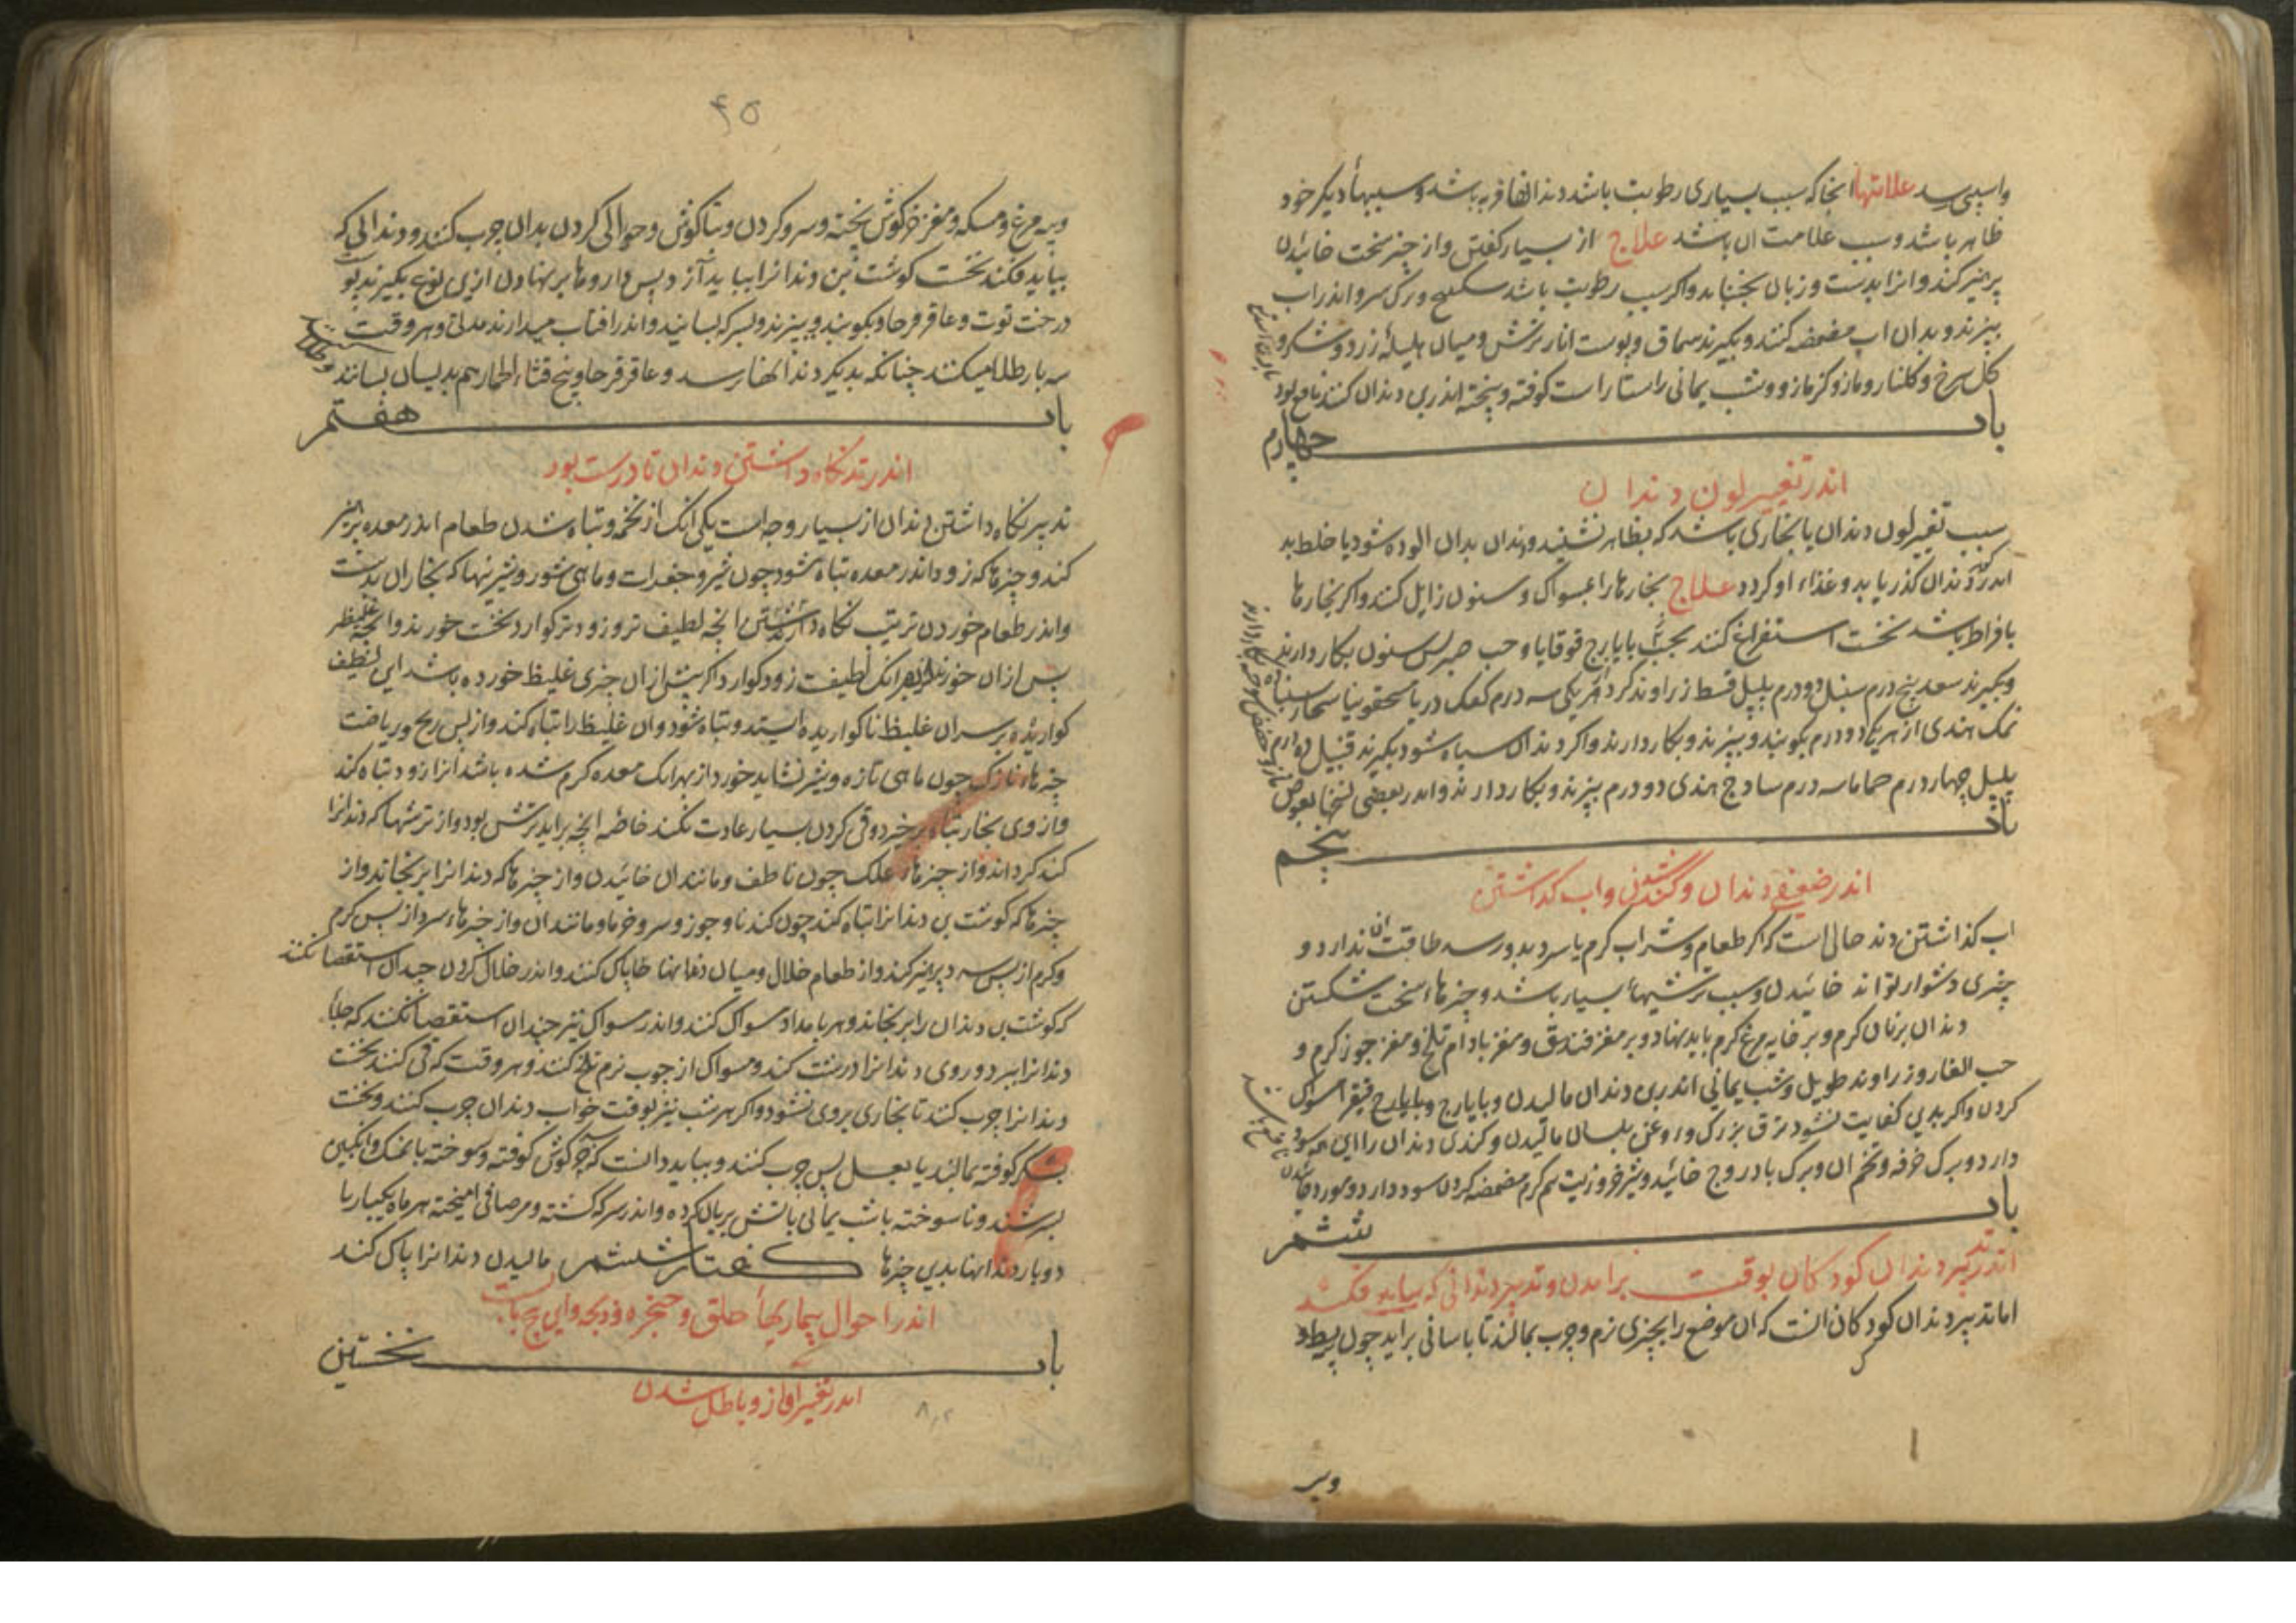 واسپی رسد علامتها انجا که سبب بسیاری رطوبت باشد دندانها فربه باشد و سببهاء دیکر خود
ظاهر باشد و سبب علامت ان باشد علاج از بسیار کفتن و از چیز سخت خائیدن
پرهیز کند و انرا بدست و زبان بجنباند و اکر سبب رطوبت باشد و رک سرو اندر اب
بپزند و بدان اب مضمضه کنند و بکیرند سماق و پوست انار ترش و میان هلیلهٔ زرد و شکر و
کل سرخ و کلنار و مازو و کزمازو و شب یمانی راستا راست کوفته و پخته اندر بن دندان کنند نافع بود
باب چهارم
اندر تغییر لون دندان
سبب تغیر لون دندان یا بخاری باشد که بظاهر نشیند و دندان بدان الوده شود یا خلط بد
اندر دندان کذر یابد و غذاء او کردد علاج بخارها را بمسواک و سنون زایل کنند و اکر بخارها
بافراط باشد نخست استفراغ کنند بحب ایارج قوقایا و حب صبر پس سنون بکار دارند
و بکیرند سعد پنج درم سنبل دو درم پلپل قسط زراوند کرد از هر یکی سه درم کفک دریا سحقونیا
نمک هندی از هر یک دو درم بکوبند و بپزند و بکار دارند و اکر دندان سیاه شود بکیرند
پلپل چهار درم حماما سه درم سادج هندی دو درم بپزند و بکار دارند و اندر بعضی نسخها بعوض
باب پنجم
اندر ضعیفی دندان و کند شدن و اب کذاشتن
اب کذاشتن دند حالی است که اکر طعام و شراب کرم یا سرد بدو رسد طاقت ان ندارد و
چیزی دشوار تواند خائیدن و سبب ترشیها بسیار باشد و چیزهاء سخت شکستن
دندان بر نان کرم و بر خایه مرغ کرم باید نهاد و بر مغز فندق و مغز بادام تلخ و مغز جوز کرم و
حب الغار و زراوند طویل و شب یمانی اندر بن دندان مالیدن و بایارج فیقرا مسواک
کردن و اکر بدین کفایت نشود تریاق بزرک و روغن بلسان مالیدن و کندی دندان را این همه سود
دارد و برک خرفه و تخم ان و برک بادروج خائیدن و شیر خر و زیت هم کرم مضمضه کردن سود دارد
باب ششم
اندر تدبیر دندان کودکان بوقت برامدن و تدبیر دندانی که بباید فکند
اما تدبیر دندان کودکان انست که ان موضع را بچیزی نرم و چرب بمالند تا باسانی براید چون پیه بط و
وپیه
۴۵
وپیه مرغ و مسکه و مغز خرکوش پخته و سر و کردن و بناکوش و حوالی کردن بدان چرب کنند و دندانی که
بباید فکند نخست کوشت بن دندانرا بباید آزرد پس داروها بر نهادن ازین نوع بکیرند پوست
درخت توت و عاقر قرحا و بکوبند و بپزند و بسرکه بسایند و اندر افتاب میدارند مدتی و هر وقت
سه بار طلا میکنند چنانکه بدیکر دندانها نرسد و عاقر قرحا و بیخ قثاء الحمار هم بدینسان بسایند
باب هفتم
اندر تد نکاه داشتن دندان تا درست بود
تدبیر نکاه داشتن دندان از بسیار وجه است یکی انک از تخمه و تباه شدن طعام اندر معده پرهیز
کند و چیزها که زود اندر معده تباه شود چون شیر و جغرات و ماهی شور و شیرینیها که بخار ان بدست
و اندر طعام خوردن ترتیب نکاه داشتن انچه لطیف تر و زودتر کوارد نخست خورند و انچه غلیظ تر
پس ازان خورند از بهر انک لطیف زود کوارد اکر پیش ازان چیزی غلیظ خورده باشد این لطیف
کواریده بر سر ان غلیظ ناکواریده ایستد و تباه شود و ان غلیظ را تباه کند و از پس رنج و ریاضت
چیزهاء نازک چون ماهی تازه و شیر نشاید خورد از بهر انک معده کرم شده باشد انرا زود تباه کند
و از وی بخار تباه برخیزد و قی کردن بسیار عادت نکند خاصه انچه براید ترش بود و از ترشیها که دندانرا
کند کرداند و از چیزهاء علک چون ناطف و مانند ان خائیدن و از چیزها که دندانرا برنجاند و از
چیزها که کوشت بن دندانرا تباه کند چون کندنا و جوز و سرو خرما و مانند ان و از چیزهاء سرد از پس کرم
و کرم از پس سرد پرهیز کند و از طعام خلال و میان دندانها پاک کنند و اندر خلال کردن چندان استقصا نکنند
که کوشت بن دندان را برنجاند و هر بامداد مسواک کنند و اندر مسواک نیز چندان استقصا نکنند که جلاء
دندانرا ببرد و روی دندانرا درشت کند و مسواک از چوب نرم تلخ کنند و هر وقت که قی کنند نخست
دندانرا چرب کنند تا بخاری بروی نشود و اکر هر شب نیز بوقت خواب دندان چرب کنند و نخست
بشکر کوفته بمالند یا بعسل پس چرب کنند و بباید دانست که کوفته و سوخته با نمک و انکبین
بسرشند و ناسوخته با شب یمانی باتش بریان کرده و اندر سرکه کشته و مر صافی امیخته هر ماه یکبار یا
دوبار دندانها بدین چیزها مالیدن دندانرا پاک کند کفتار ششم
اندر احوال بیماریهاء حلق و حنجره و ذبحه و این پنج بابست
باب نخستین
اندر تغییر اواز و باطل شدن